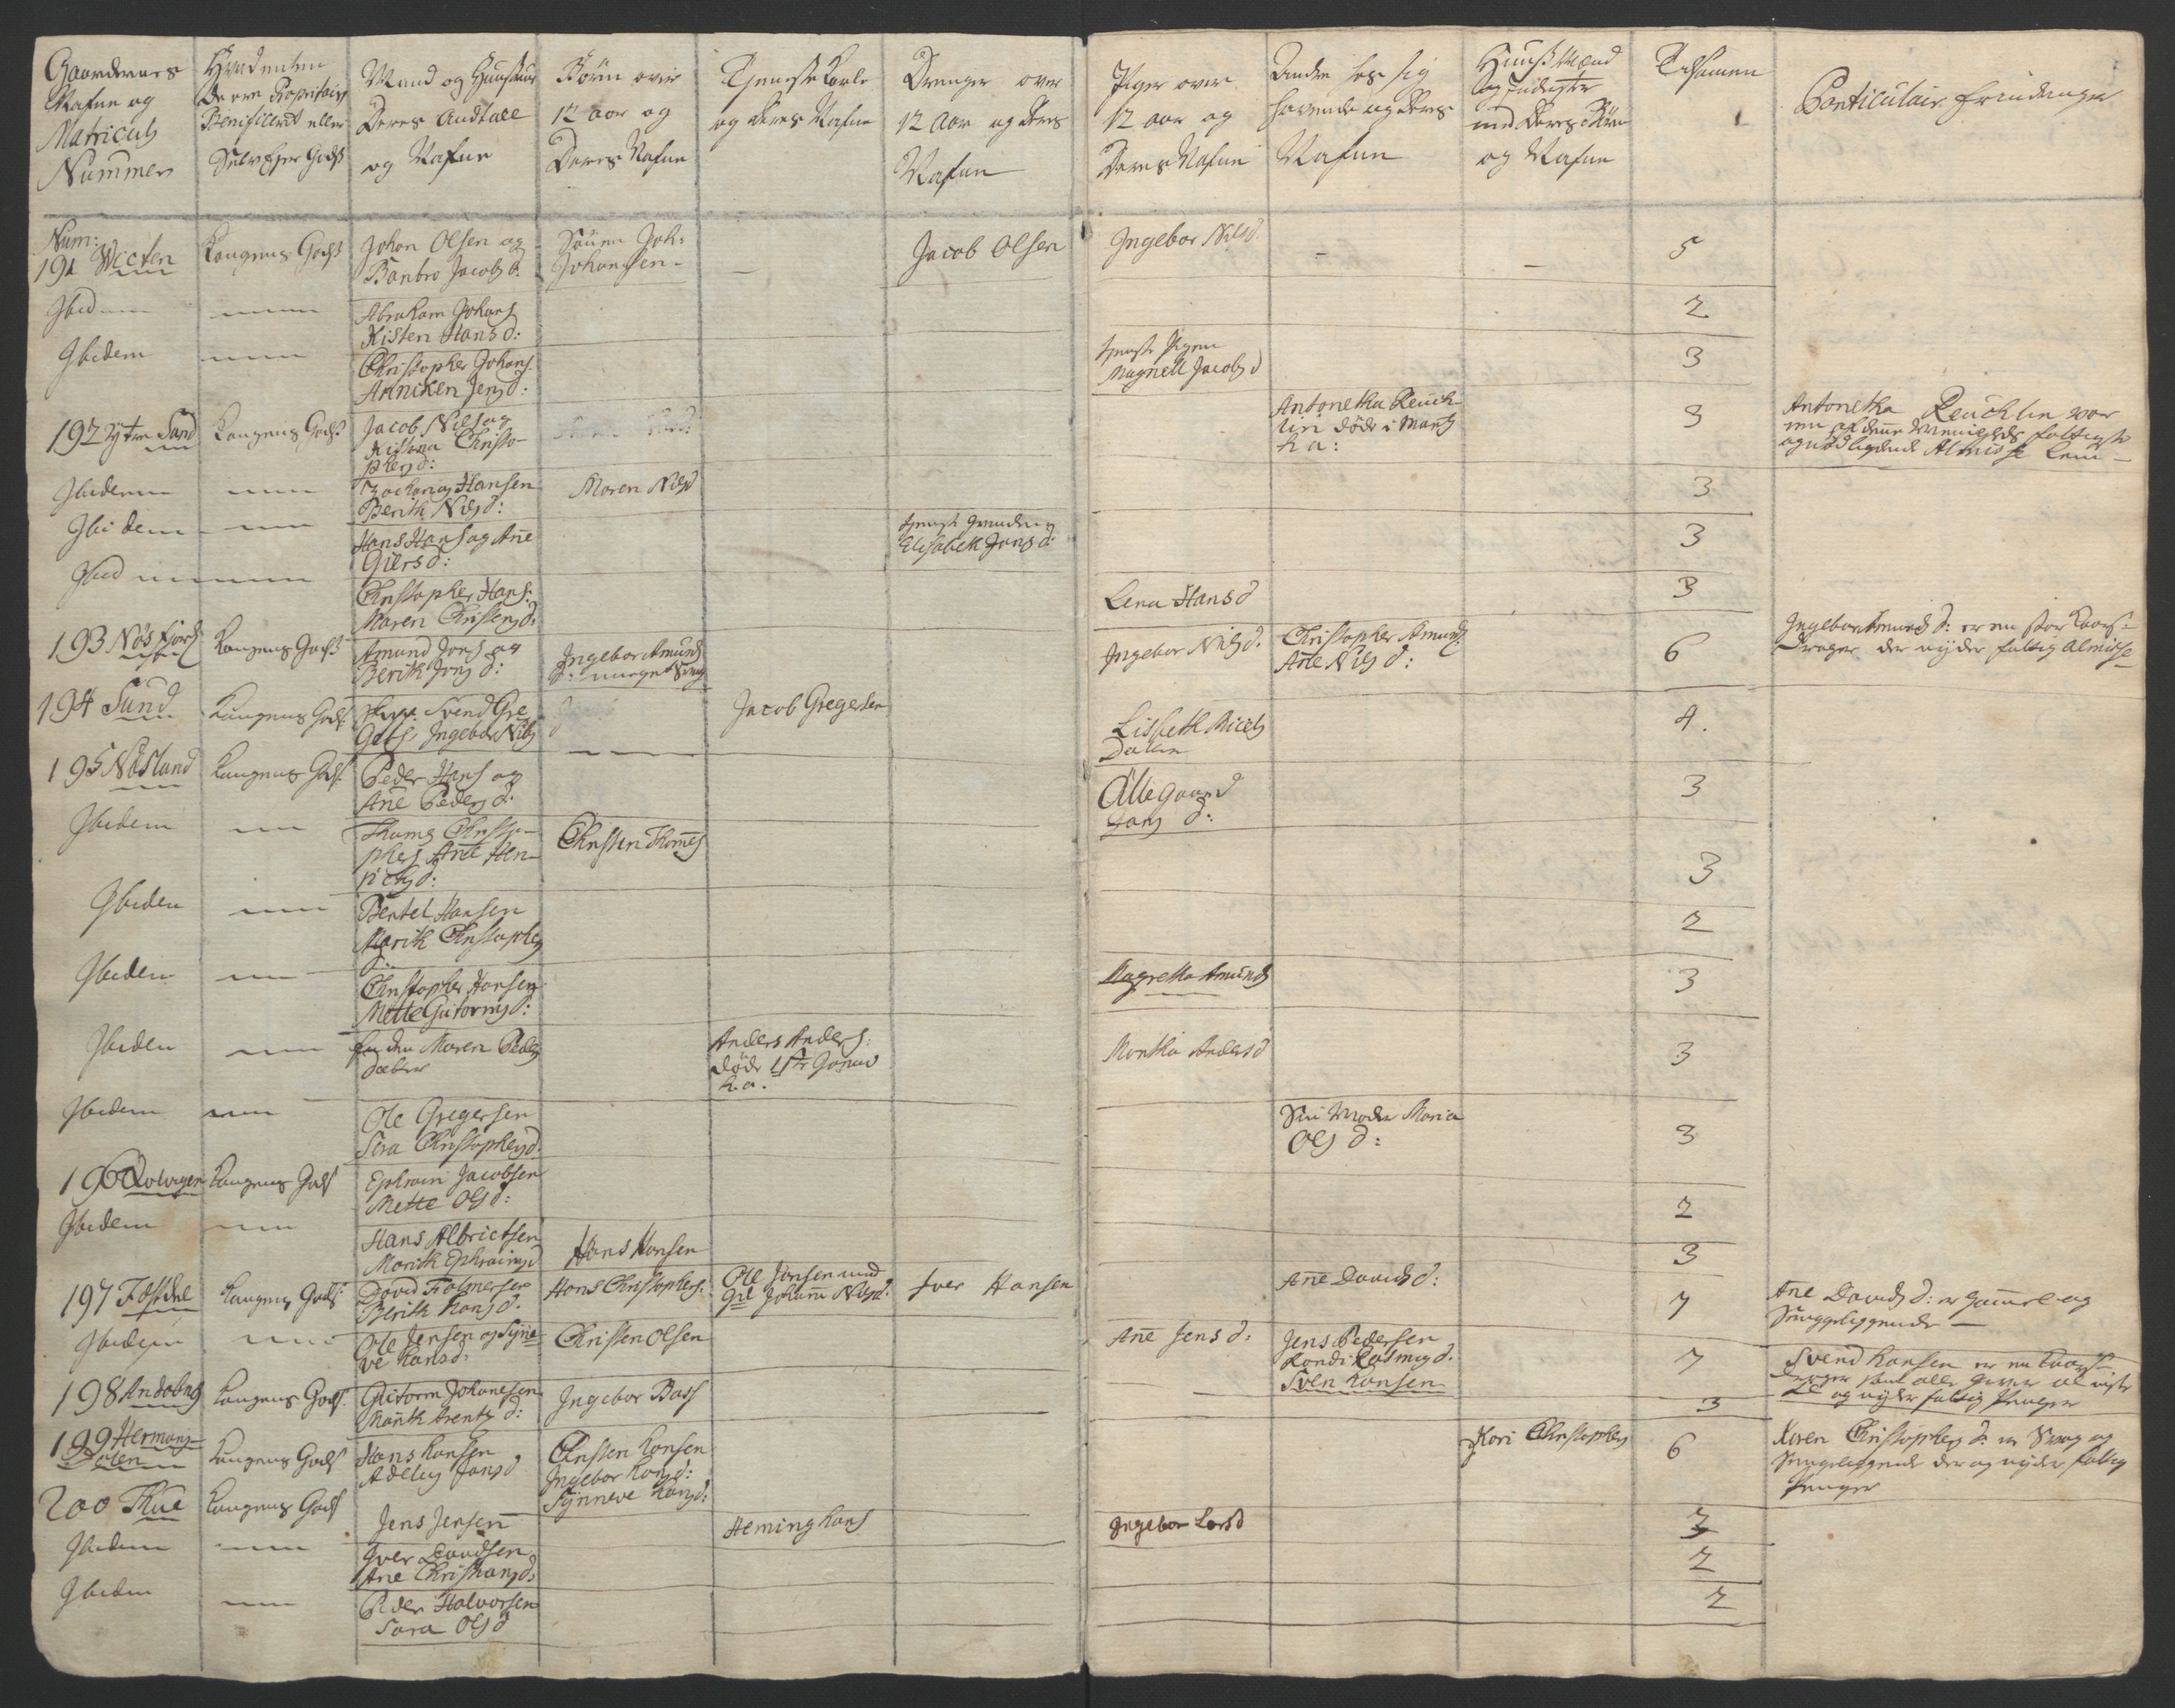 Gaardernes
Nafne og
Matriculs
Nummer
Hvad enten
de ere Proprietair
Beneficeret eller
Selv Ejer Gods
Mand og Hustrue
Deres Andtall
og Nafne
Børn over
12 aar og
Deres Nafne
Tjeneste Karle
og deres Nafne
Drenger over
12 Aar og deres
Nafne
Piger over
12 aar og
Deres Nafne
Andre hos sig
havende og deres
Nafne
Huusmænd
og Inderster
med deres Børn
og Nafne
Tilsamen
Particulair
Num:
191 Wicten
Kongens Gods
Johan Olsen og
Barbro Jacobsd:
Johansen
Jacob Olsen
Ingebor Nilsd:
5
Ibidem
Abraham Johans
Kisten Hansd:
2
Ibidem
Christopher Johans
Anniken Jensd:
tjeneste Pigen
Magnell Jacobsd
3
192 Ytre Sand
Kongens Gods
Jacob Nils og
Kistina Christo-
phersd:
Antonetha Reuch-
lin døde i Marts
h a:
3
Antonetha Reuchlin var
en af denne Menigheds fattigste
og nødlidende Almisse Lem
Ibidem
Zacharias Hansen
Berith Nilsd:
Maren Nilsd
3
Ibidem
Hans Hans og Ane
Giersd:
Elisabeth Jonsd:
3
Ibid
Christopher Hans:
Maren Christensd:
Lena Hansd
3
193 Nøsfjord
Kongens Gods
Amund Jons og
Berith Jonsd:
Ingebor Amunds
d: meget svag
Ingebor Nilsd:
Christopher Amunds:
Ane Nilsd:
6
Ingebor Amundsd: er en stor Kors-
Drager der nyder fattig Almisse
194 Sund
Kongens Gods
Svend Gre
gers Ingebor Nils
d
Jacob Gregersen
Lisbeth Niels
Datter
4.
195 Nøsland
Kongens Gods
Peder Hans og
Ane Pedersd:
Ollegaard
Jonsd:
3
Ibidem
Thoms Christo-
phers Ane Hen-
richsd:
Christen Thomes
3
Ibidem
Bentel Hansen
Marith Christophers
d:
2
Ibidem
Christopher Hansen
Mette Gutormsd:
Magretha Amunds
3
Ibidem
Maren Peders
datter
Anders Anders:
døde 1ste Januar
h.a.
Martha Andersd
3
Ibidem
Ole Gregersen
Sera Christophersd:
Sin Moder Maria
Olsd:
3
196 Qvolvigen
Kongens Gods
Ephraim Jacobsen
Mette Olsd:
2
Ibidem
Hans Albrictsen
Marith Ephraimsd
Hans Hansen
3
197 Festdal
Kongens Gods
David Folmersen
Berith Hansd.
Hans Christophers:
Ole Jonsen med
Johana Nilsd:
Iver Hansen
Ane Davidsd:
7
Ane Davidsd: er Gammel og
Sengeliggende
Ibidem
Ole Jensen og Syne
ve Hansd:
Christen Olsen
Ane Jensd:
Jens Pedersen
Randi Rasmusd.
Sven Hansen
7
Svend Hansen er en Kors-
drager
og nyder fattig Penger
198 Andobng
Kongens Gods
Gutorm Johanesen
Marith Arentsd:
Ingebor Bass
3
199 Hermans-
Dalen
Kongens Gods
Hans Hansen
Adelus Jonsd
Christen Hansen
Ingebor Hansd:
Synneve Hansd:
Kari Christophers
6
Karen Christophersd: er Svag og
Sengeliggende der og nyder fattig
Penger
200 Thue
Kongens Gods
Jens Jensen
Heming Hans
Ingebor Larsd
3
Ibidem
Iver Davidsen
Ane Christiansd:
2
Ibidem
Peder Halvorsen
Sara Olsd
2